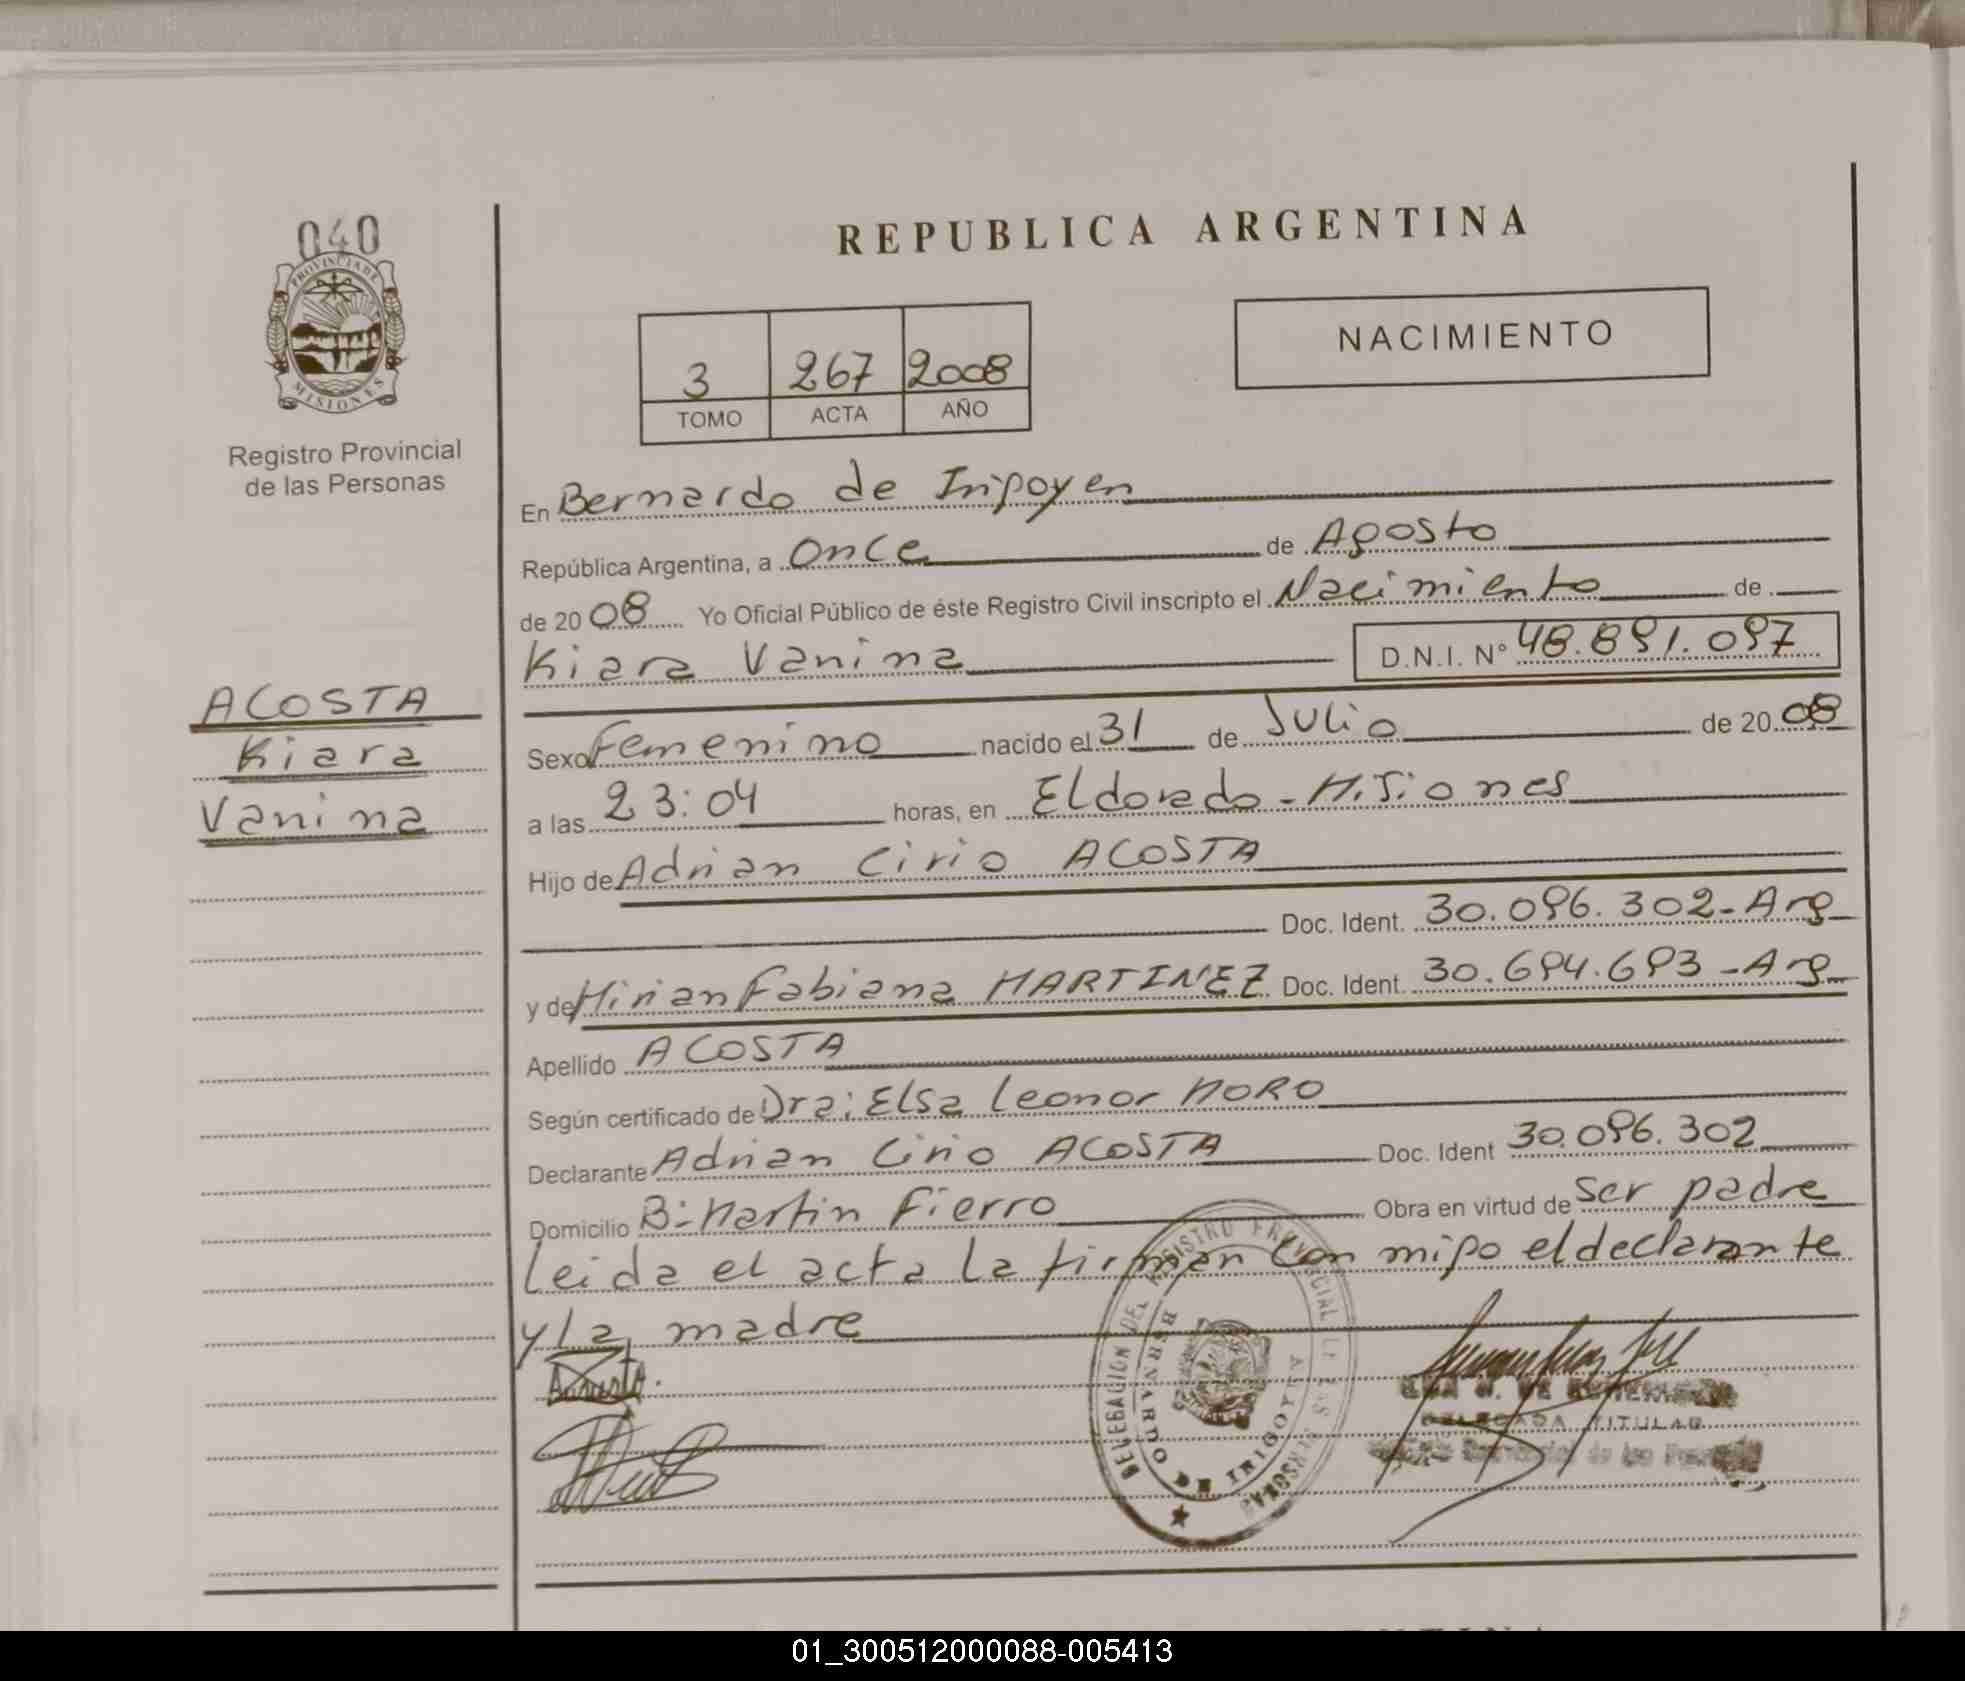 040
PROVINCIA DE
MISIONES
Registro Provincial
de las Personas
ACOSTA
Kiara
Vanina
REPUBLICA ARGENTINA
3 267 2008
TOMO ACTA AÑO
NACIMIENTO
En Bernardo de Iripoyen
República Argentina, a Once de Agosto
de 20 08 Yo Oficial Público de éste Registro Civil inscripto el Nacimiento de
Kiara Vanina D.N.I. N° 48.891.097
Sexo Femenino nacido el 31 de Julio de 20 08
a las 23:04 horas, en Eldorado - Misiones
Hijo de Adrian Cirio ACOSTA
Doc. Ident. 30.096.302 - Arg
y de Mirian Fabiana MARTINEZ Doc. Ident. 30.694.693 - Arg
Apellido ACOSTA
Según certificado de Dra: Elsa Leonor MORO
Declarante Adrian Cirio ACOSTA Doc. Ident 30.096.302
Domicilio B: Martin Fierro Obra en virtud de ser padre
Leida el acta la firman con mipo el declarante
y la madre
DELEGACION DEL REGISTRO PROVINCIAL DE LAS PERSONAS
BERNARDO DE IRIGOYEN
DELEGADA TITULAR
Provincial de las Personas
01_300512000088-005413